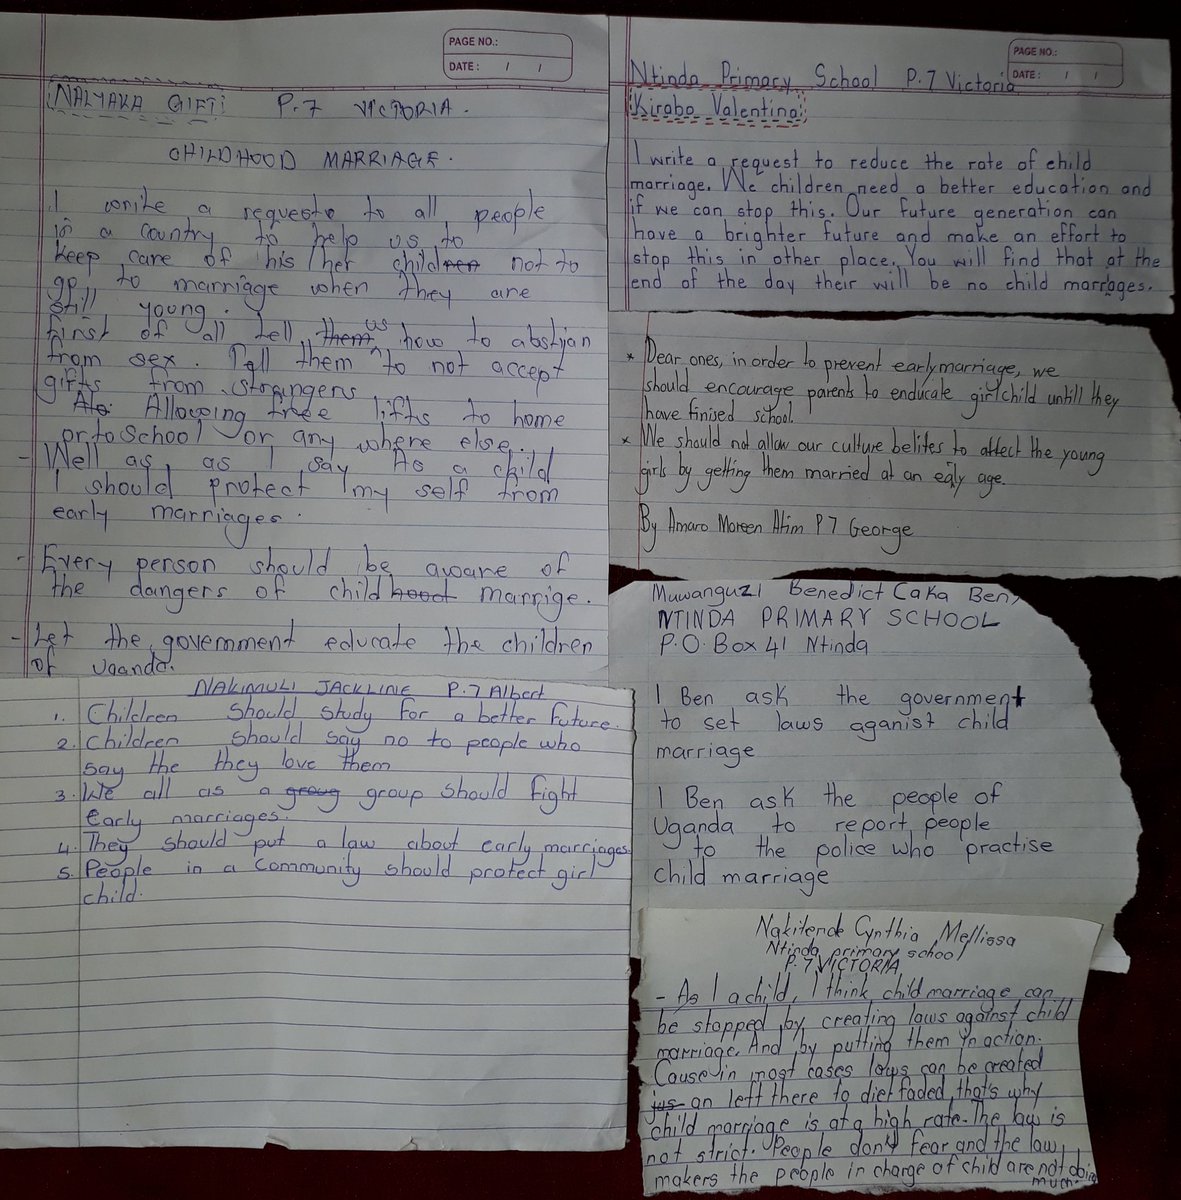 PAGE NO.:
DATE: / /
NALYAKA GIFT P.7 VICTORIA.
CHILDHOOD MARRIAGE.
I write a requesto to all people
in a country to help us to
keep care of his/her children not to
go to marriage when they are
still young.
First of all tell them us how to abstjan
from sex. Tell them to not accept
gifts from strangers
Als Allowing free lifts to home
or to School or any where else.
- Well as, as I say As a child
I should protect my self from
early marriages.
- Every person should be aware of
the dangers of childhood marrige.
- Let the government educate the children
of uganda.
NAKIMULI JACKLINE P.7 Albert
1. Children should study for a better future.
2. Children should say no to people who
say the they love them
3. We all as a group group should fight
Early marriages.
4. They should put a law about early marriages.
5. People in a Community should protect girl
child.
PAGE NO.:
DATE: / /
Ntinda Primary School P.7 Victoria
Kirabo Valentina
I write a request to reduce the rate of child
marriage. We children need a better education and
if we can stop this. Our future generation can
have a brighter future and make an effort to
stop this in other place. You will find that at the
end of the day their will be no child marriages.
* Dear ones, in order to prevent early marriage, we
should encourage parents to enducate girlchild untill they
have finised school.
* We should not allow our culture belifes to affect the young
girls by getting them married at an ealy age.
By Amaro Moreen Atim P7 George
Muwanguzi Benedict Caka Ben,
NTINDA PRIMARY SCHOOL
P.O.Box 41 Ntinda
I Ben ask the government
to set laws aganist child
marriage
I Ben ask the people of
Uganda to report people
to the police who practise
child marriage
Nakitende Cynthia Mellissa
Ntinda primary school
P.7 VICTORIA
- As I a child, I think child marriage can
be stopped by creating laws against child
marriage. And by putting them in action.
Cause in most cases laws can be created
jus an left there to diet faded, that's why
child marriage is at a high rate. The law is
not strict. People don't fear and the law
makers the people in charge of child are not doing
much.